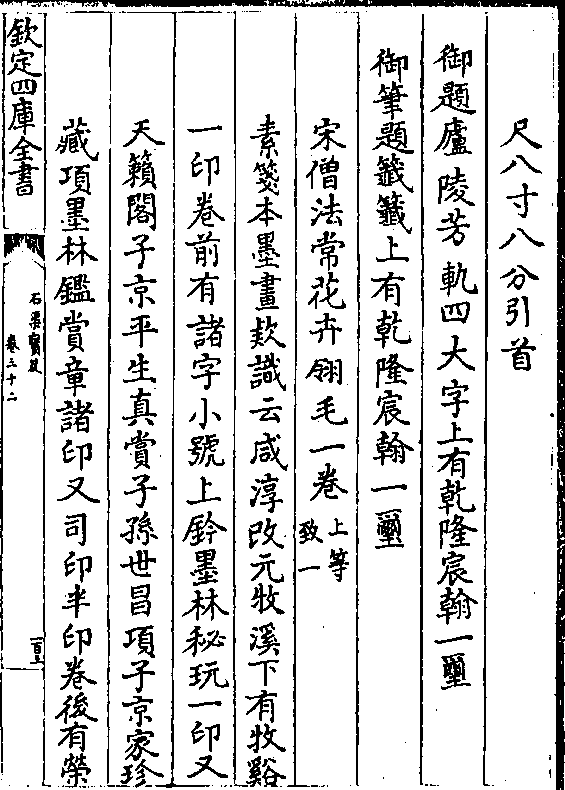 尺八寸八分引首
御題廬陵芳軌四大字上有乾隆宸翰一璽
御筆題籤籤上有乾隆宸翰一璽
宋僧法常花卉翎毛一卷上等
致一
素箋本墨畫欵識云咸淳改元牧溪下有牧谿
一印卷前有諸字小號上鈐墨林秘玩一印又
天籟閣子京平生真賞子孫世昌項子京家珍
藏項墨林鑑賞章諸印又司印半印卷後有榮
欽定四庫全書
石渠寶笈
卷三十二